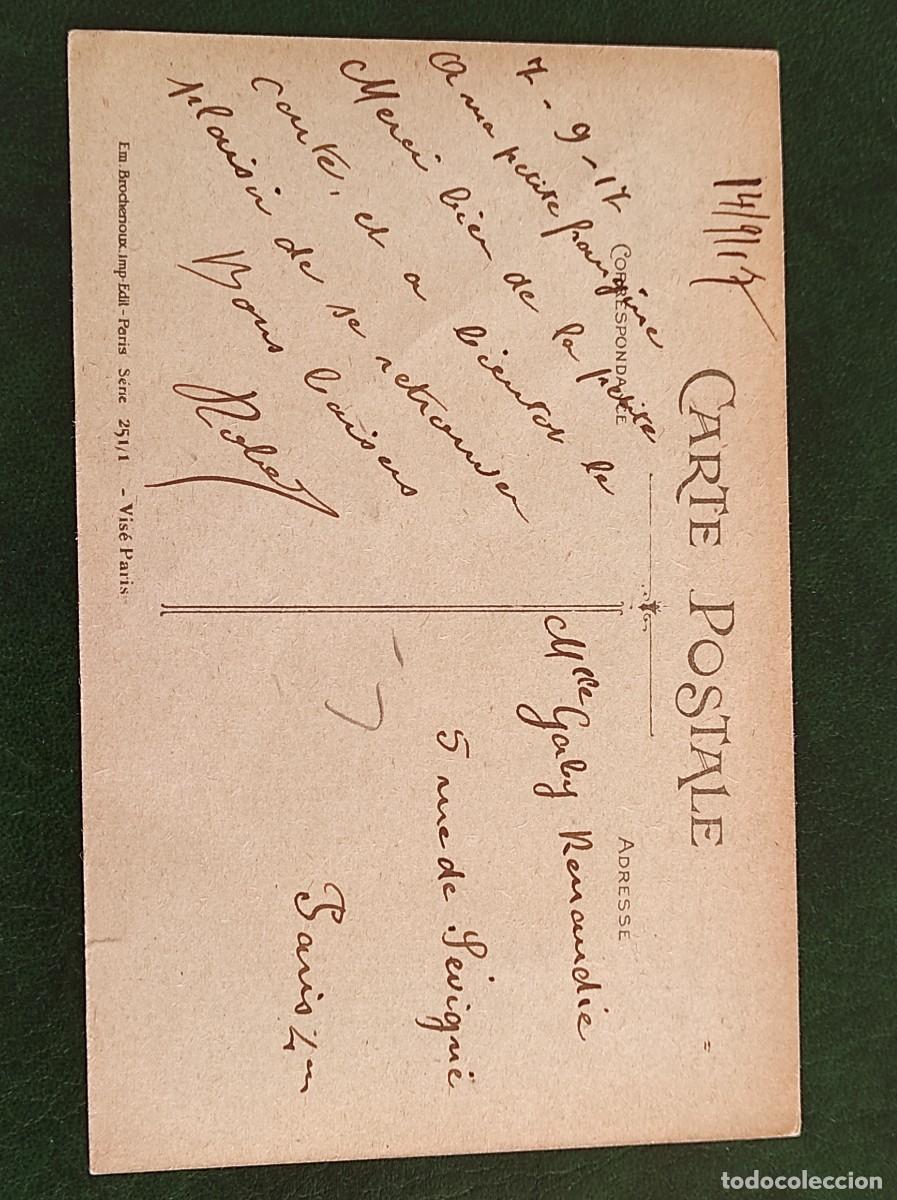 14/9/17
CARTE POSTALE
CORRESPONDANCE
ADRESSE
7-9-17
A ma petite frangine
Merci bien de la petite
carte, et a bientot le
plaisir de se retrouver
Bons baisers
Robert
Mlle Gaby Remondie
5 rue de Sévigné
Paris 4m
Em. Brochenoux. Imp-Edit - Paris Série 251/1 - Visé Paris-
todocoleccion